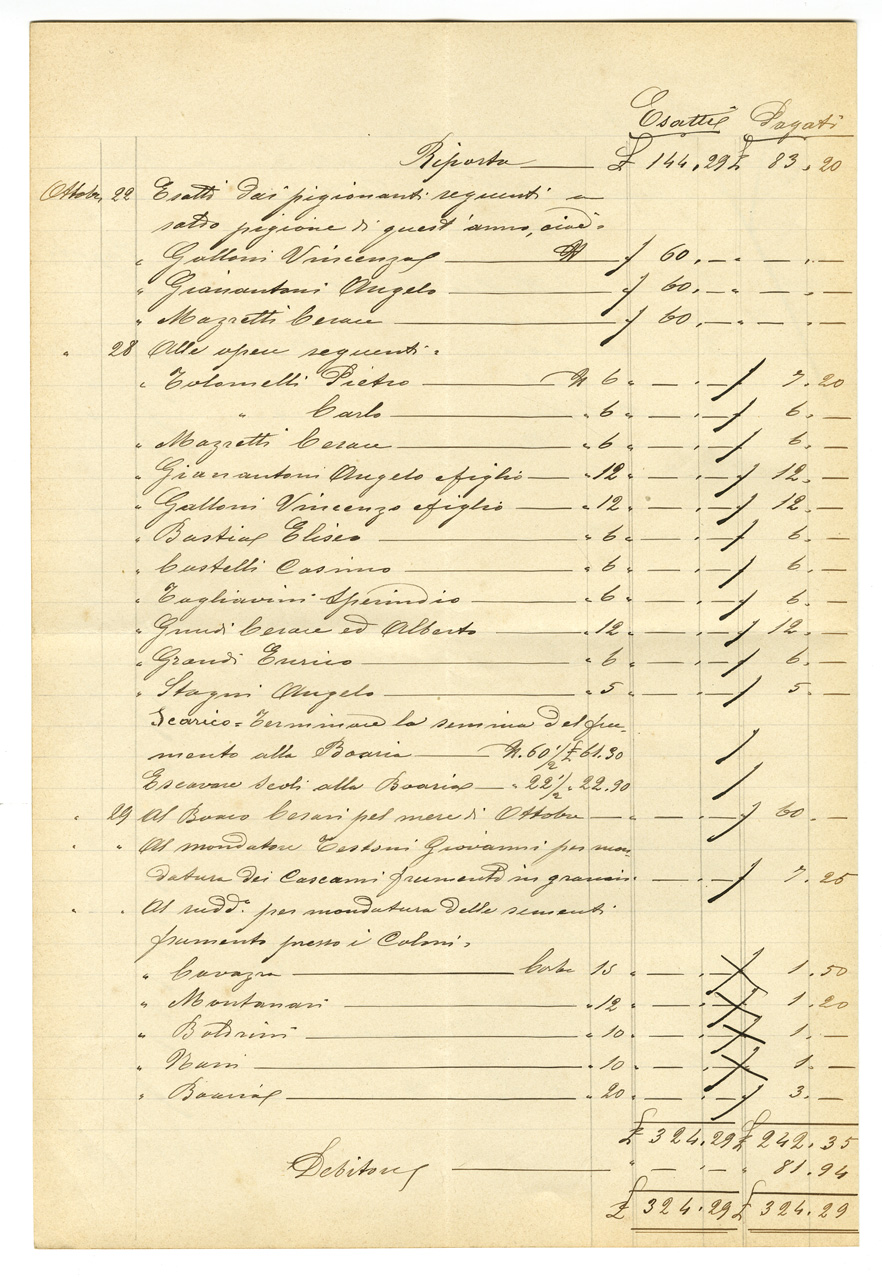 Esatti Pagati
Riporto £ 144.29 £ 83.20
Ottobre 22 Esatti dai pigionanti seguenti a
saldo pigione di quest'anno, cioè:
" Galloni Vincenzo 60. — " — . —
" Gianantoni Angelo 60. — " — . —
" Mazzetti Cesare 60. — " — . —
" 28 Alle opere seguenti:
" Tolomelli Pietro N 6 " — . — 7.20
" Carlo " 6 " — . — 6. —
" Mazzetti Cesare " 6 " — . — 6. —
" Gianantoni Angelo e figlio " 12 " — . — 12. —
" Galloni Vincenzo e figlio " 12 " — . — 12. —
" Bastia Eliseo " 6 " — . — 6. —
" Castelli Cosimo " 6 " — . — 6. —
" Tagliavini Sperindio " 6 " — . — 6. —
" Guudi Cesare ed Alberto " 12 " — . — 12. —
" Grandi Enrico " 6 " — . — 6. —
" Stagni Angelo " 5 " — . — 5. —
Scarico = Terminare la semina del fru-
mento alla Boaria N. 60 1/2 £ 61.30
Escavare scoli alla Boaria " 22 1/2 " 22.90
" 29 Al Boaro Cesari pel mese di Ottobre — . — 60. —
" " Al mondatore Testoni Giovanni per mon-
datura dei Cascami frumento in grancia — . — 7.25
" " Al sudd.o per mondatura delle sementi
frumento presso i Coloni:
" Cavazza Corbe 15 " — . — 1.50
" Montanari " 12 " — . — 1.20
" Boldrini " 10 " — . — 1. —
" Nani " 10 " — . — 1. —
" Boaria " 20 " — . — 3. —
£ 324.29 £ 242.35
Debitore " — . — " 81.94
£ 324.29 £ 324.29